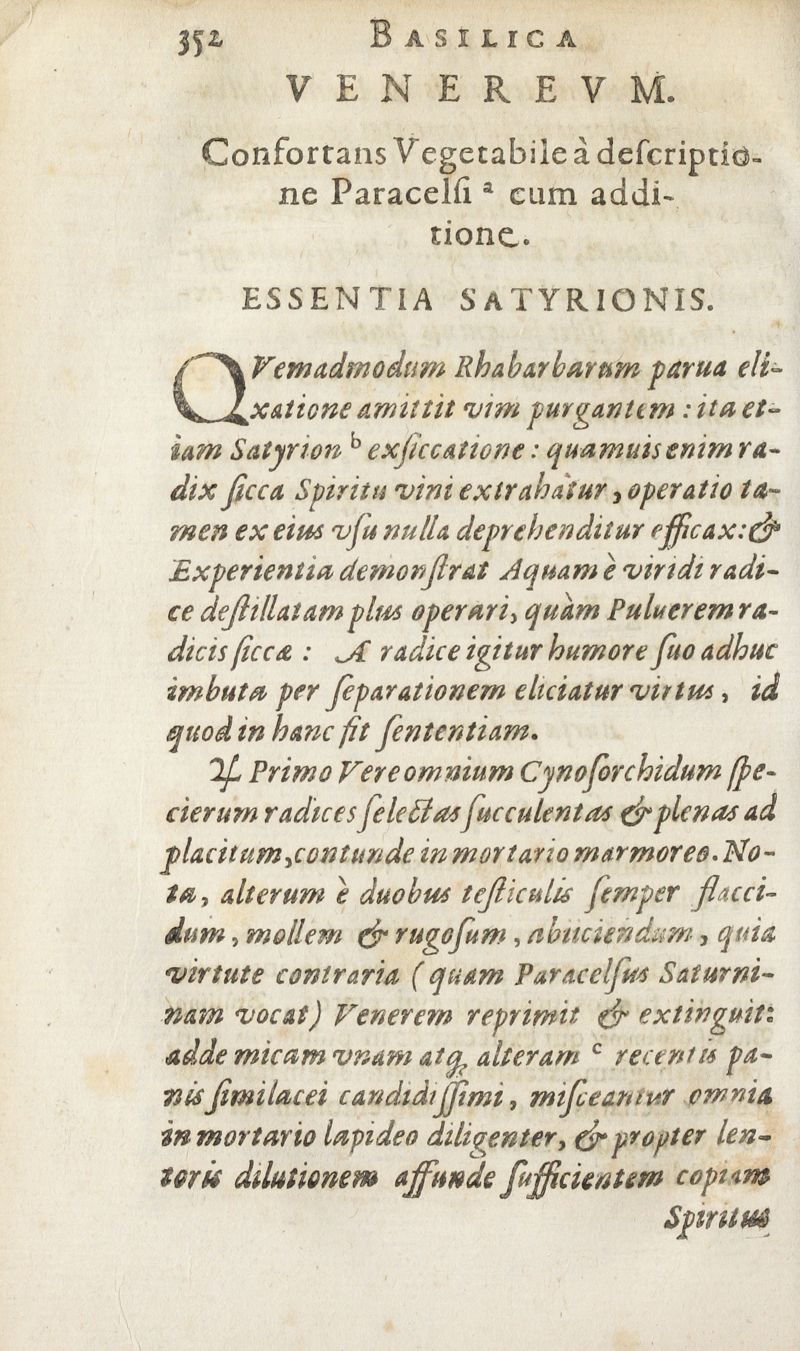 352 BASILICA
VENEREVM.
Confortans Vegetabile à descriptio-
ne Paracelsi ª cum addi-
tione.
ESSENTIA SATYRIONIS.
QVemadmodum Rhabarbarum parua eli-
xatione amittit vim purgantem : ita et-
iam Satyrion ᵇ exsiccatione : quamuis enim ra-
dix sicca Spiritu vini extrahatur, operatio ta-
men ex eius vsu nulla deprehenditur efficax: &
Experientia demonstrat Aquam è viridi radi-
ce destillatam plus operari, quàm Puluerem ra-
dicis siccæ : A radice igitur humore suo adhuc
imbuta per separationem eliciatur virtus, id
quod in hanc fit sententiam.
♃ Primo Vere omnium Cynosorchidum spe-
cierum radices selectas succulentas & plenas ad
placitum, contunde in mortario marmoreo. No-
ta, alterum è duobus testiculis semper flacci-
dum, mollem & rugosum, abiiciendum, quia
virtute contraria (quam Paracelsus Saturni-
nam vocat) Venerem reprimit & extinguit:
adde micam vnam atq; alteram ᶜ recentis pa-
nis similacei candidissimi, misceantur omnia
in mortario lapideo diligenter, & propter len-
toris dilutionem affunde sufficientem copiam
Spiritus